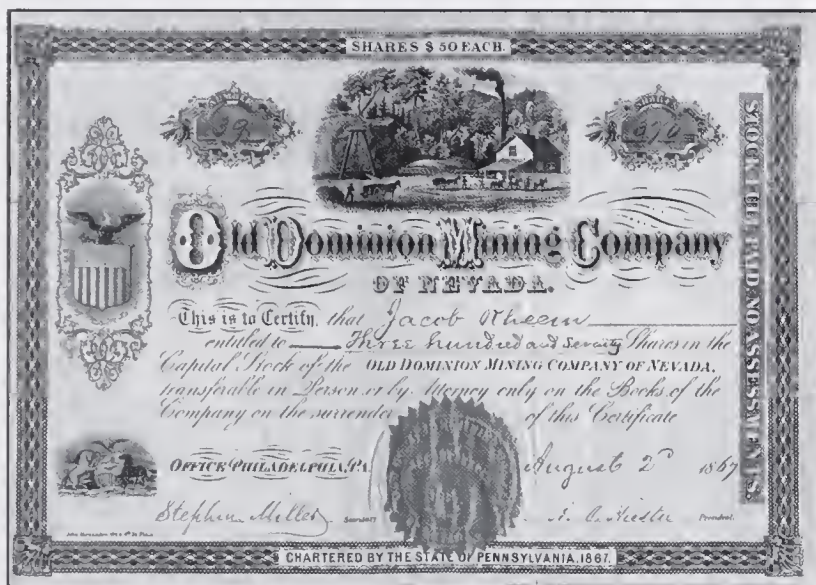 SHARES $50 EACH.
NUMBER
39
SHARES
370
STOCK FULL PAID NO ASSESSMENTS.
Old Dominion Mining Company
OF NEVADA.
This is to Certify, that Jacob Rheem
entitled to Three hundred and Seventy Shares in the
Capital Stock of the OLD DOMINION MINING COMPANY OF NEVADA,
transferable in Person or by Attorney only on the Books of the
Company on the surrender of this Certificate
OFFICE PHILADELPHIA, PA. August 2d 1867
Stephen Miller Secretary President.
CHARTERED BY THE STATE OF PENNSYLVANIA, 1867.